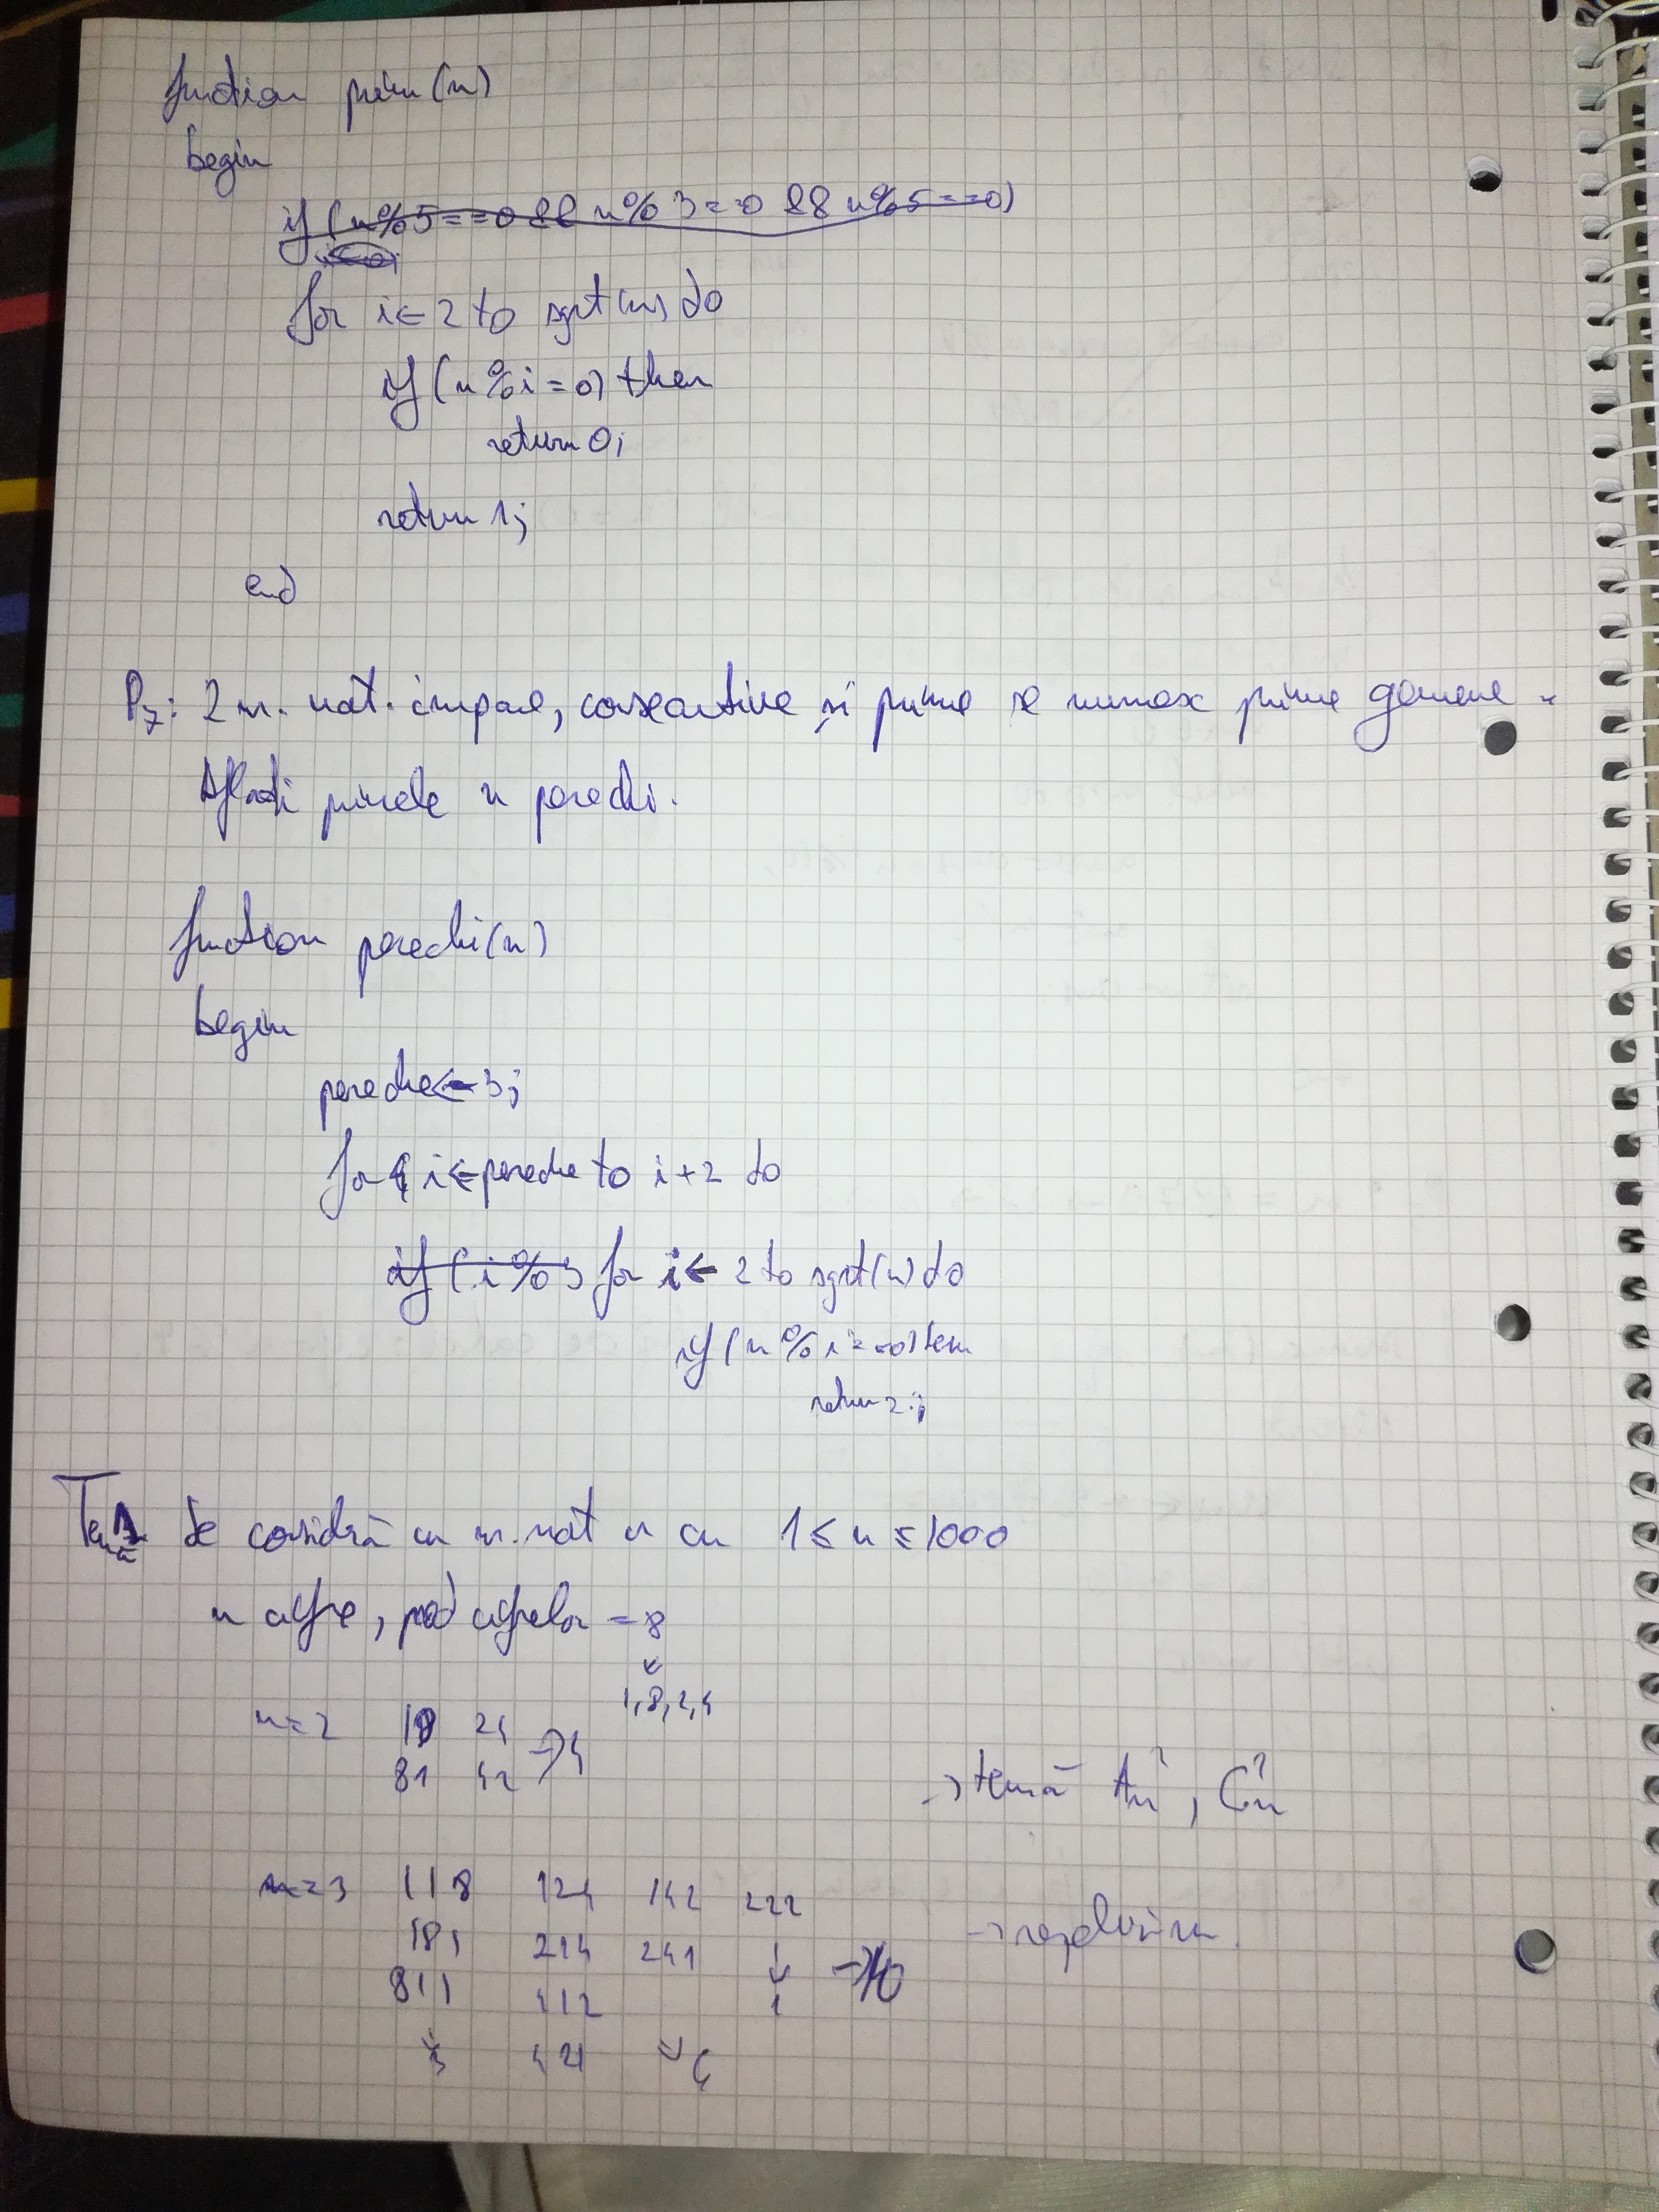 function prim(n)
begin
if (n%5==0 && n%3==0 && n%5==0)
for i← 2 to sqrt(n) do
if (n%i=0) then
return 0;
return 1;
end
P7: 2 nr. nat. impare, consecutive și prime se numesc prime gemene.
Aflați primele n perechi.
function perechi(n)
begin
pereche←3;
for i←pereche to i+2 do
if (i%) for i← 2 to sqrt(n) do
if (n%i==0) then
return 2;
Temă 1 Se consideră un nr. nat n cu 1≤n≤1000
n cifre, prod cifrelor = 8
1,8,2,4
n=2 18 24
81 42 → 4
→ temă An², Cn²
n=3 118 124 142 222
181 214 241 ↓ → 10
→ rezolvăm
811 412 1
3 421 => 6